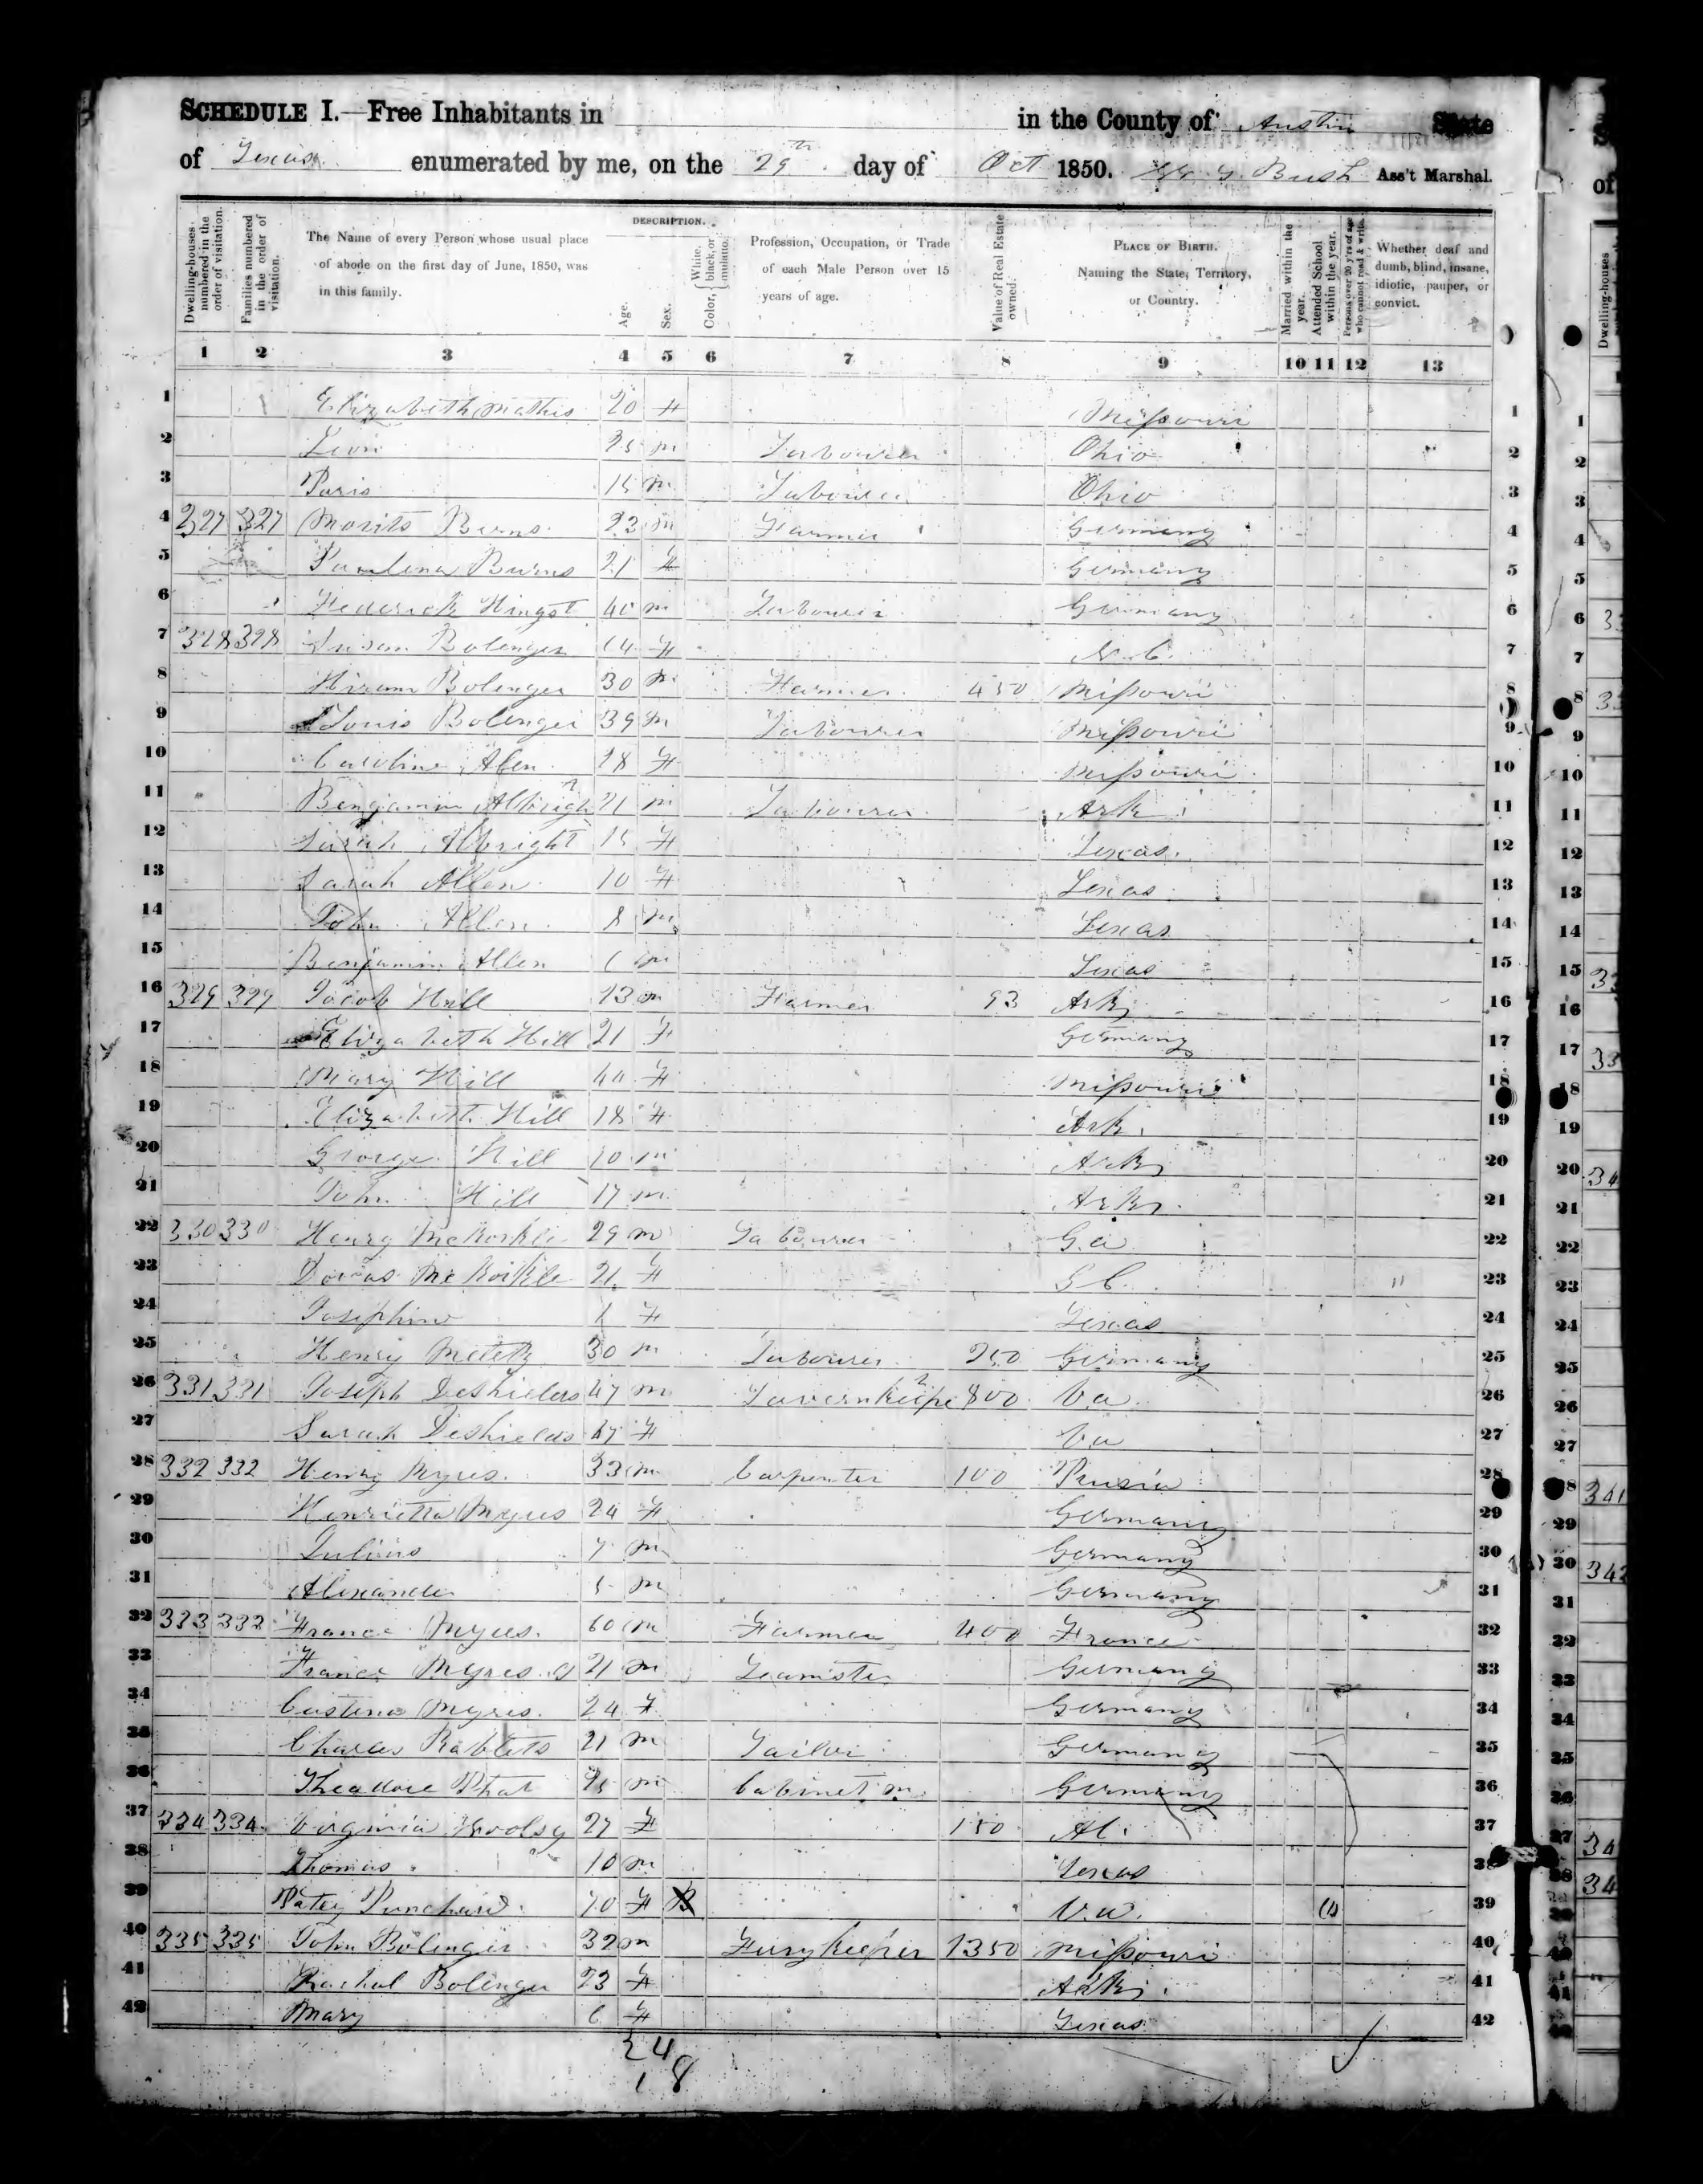 SCHEDULE I.—Free Inhabitants in in the County of Austin State
of Texas enumerated by me, on the 29th day of Oct 1850. Bush Ass't Marshal.
Dwelling-houses numbered in the order of visitation.
Families numbered in the order of visitation.
The Name of every Person whose usual place of abode on the first day of June, 1850, was in this family.
DESCRIPTION.
Age.
Sex.
Color, White, black, or mulatto.
Profession, Occupation, or Trade of each Male Person over 15 years of age.
Value of Real Estate owned.
PLACE OF BIRTH. Naming the State, Territory, or Country.
Married within the year.
Attended School within the year.
Persons over 20 y'rs of age who cannot read & write.
Whether deaf and dumb, blind, insane, idiotic, pauper, or convict.
1 2 3 4 5 6 7 8 9 10 11 12 13
1 Elizabeth Mathis 20 F Missouri 1
2 Levi 25 m Labourer Ohio 2
3 Paris 15 m Labourer Ohio 3
4 327 327 Morits Burns 23 m Farmer Germany 4
5 Paulena Burns 21 F Germany 5
6 Federick Hingst 40 m Labourer Germany 6
7 328 328 Susan Bolenger 64 F N.C. 7
8 Hiram Bolenger 30 m Farmer 450 Missouri 8
9 Louis Bolenger 39 m Labourer Missouri 9
10 Caroline Alen 28 F Missouri 10
11 Benjamin Albright 21 m Labourer Ark 11
12 Sarah Albright 15 F Texas 12
13 Sarah Allen 10 F Texas 13
14 John Allen 8 m Texas 14
15 Benjamin Allen 6 m Texas 15
16 329 329 Jacob Hill 23 m Farmer 93 Ark 16
17 Elizabeth Hill 21 F Germany 17
18 Mary Hill 40 F Missouri 18
19 Elizabeth Hill 18 F Ark 19
20 George Hill 10 m Ark 20
21 John Hill 17 m Ark 21
22 330 330 Henry McKorkle 29 m Labourer Ga 22
23 Dorcas McKorkle 21 F S C. 23
24 Josephine 1 F Texas 24
25 Henry Metetz 30 m Labourer 250 Germany 25
26 331 331 Joseph Deshields 47 m Tavern Keeper 800 Va 26
27 Sarah Deshields 47 F Va 27
28 332 332 Henry Myres 33 m Carpenter 100 Prusia 28
29 Henrietta Myres 24 F Germany 29
30 Julius 7 m Germany 30
31 Alexander 5 m Germany 31
32 333 333 France Myres 60 m Farmer 400 France 32
33 France Myres 21 m Teamster Germany 33
34 Custena Myres 24 F Germany 34
35 Charles Rablets 21 m Tailor Germany 35
36 Theadore 25 m Cabinet m. Germany 36
37 334 334 Virginia Woolsy 27 F 150 Al. 37
38 Thomas 10 m Texas 38
39 Patey Punchard 70 F B Va. 39
40 335 335 John Bolenger 32 m Ferry keeper 1350 Missouri 40
41 Rachal Bolenger 23 F Ark 41
42 Mary 6 F Texas 42
24
18